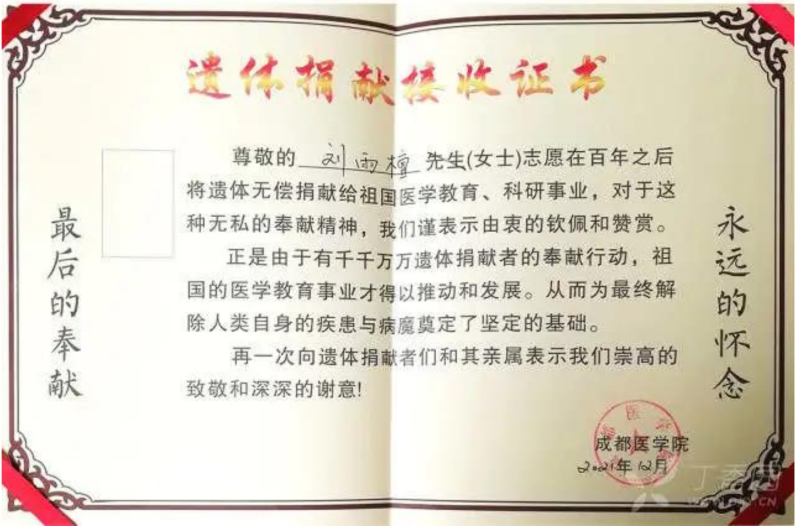 遗体捐献接收证书
尊敬的 刘雨檀 先生(女士)志愿在百年之后
将遗体无偿捐献给祖国医学教育、科研事业，对于这
种无私的奉献精神，我们谨表示由衷的钦佩和赞赏。
正是由于有千千万万遗体捐献者的奉献行动，祖
国的医学教育事业才得以推动和发展。从而为最终解
除人类自身的疾患与病魔奠定了坚定的基础。
再一次向遗体捐献者们和其亲属表示我们崇高的
致敬和深深的谢意!
成都医学院
2021年12月
最后的奉献
永远的怀念
丁香园